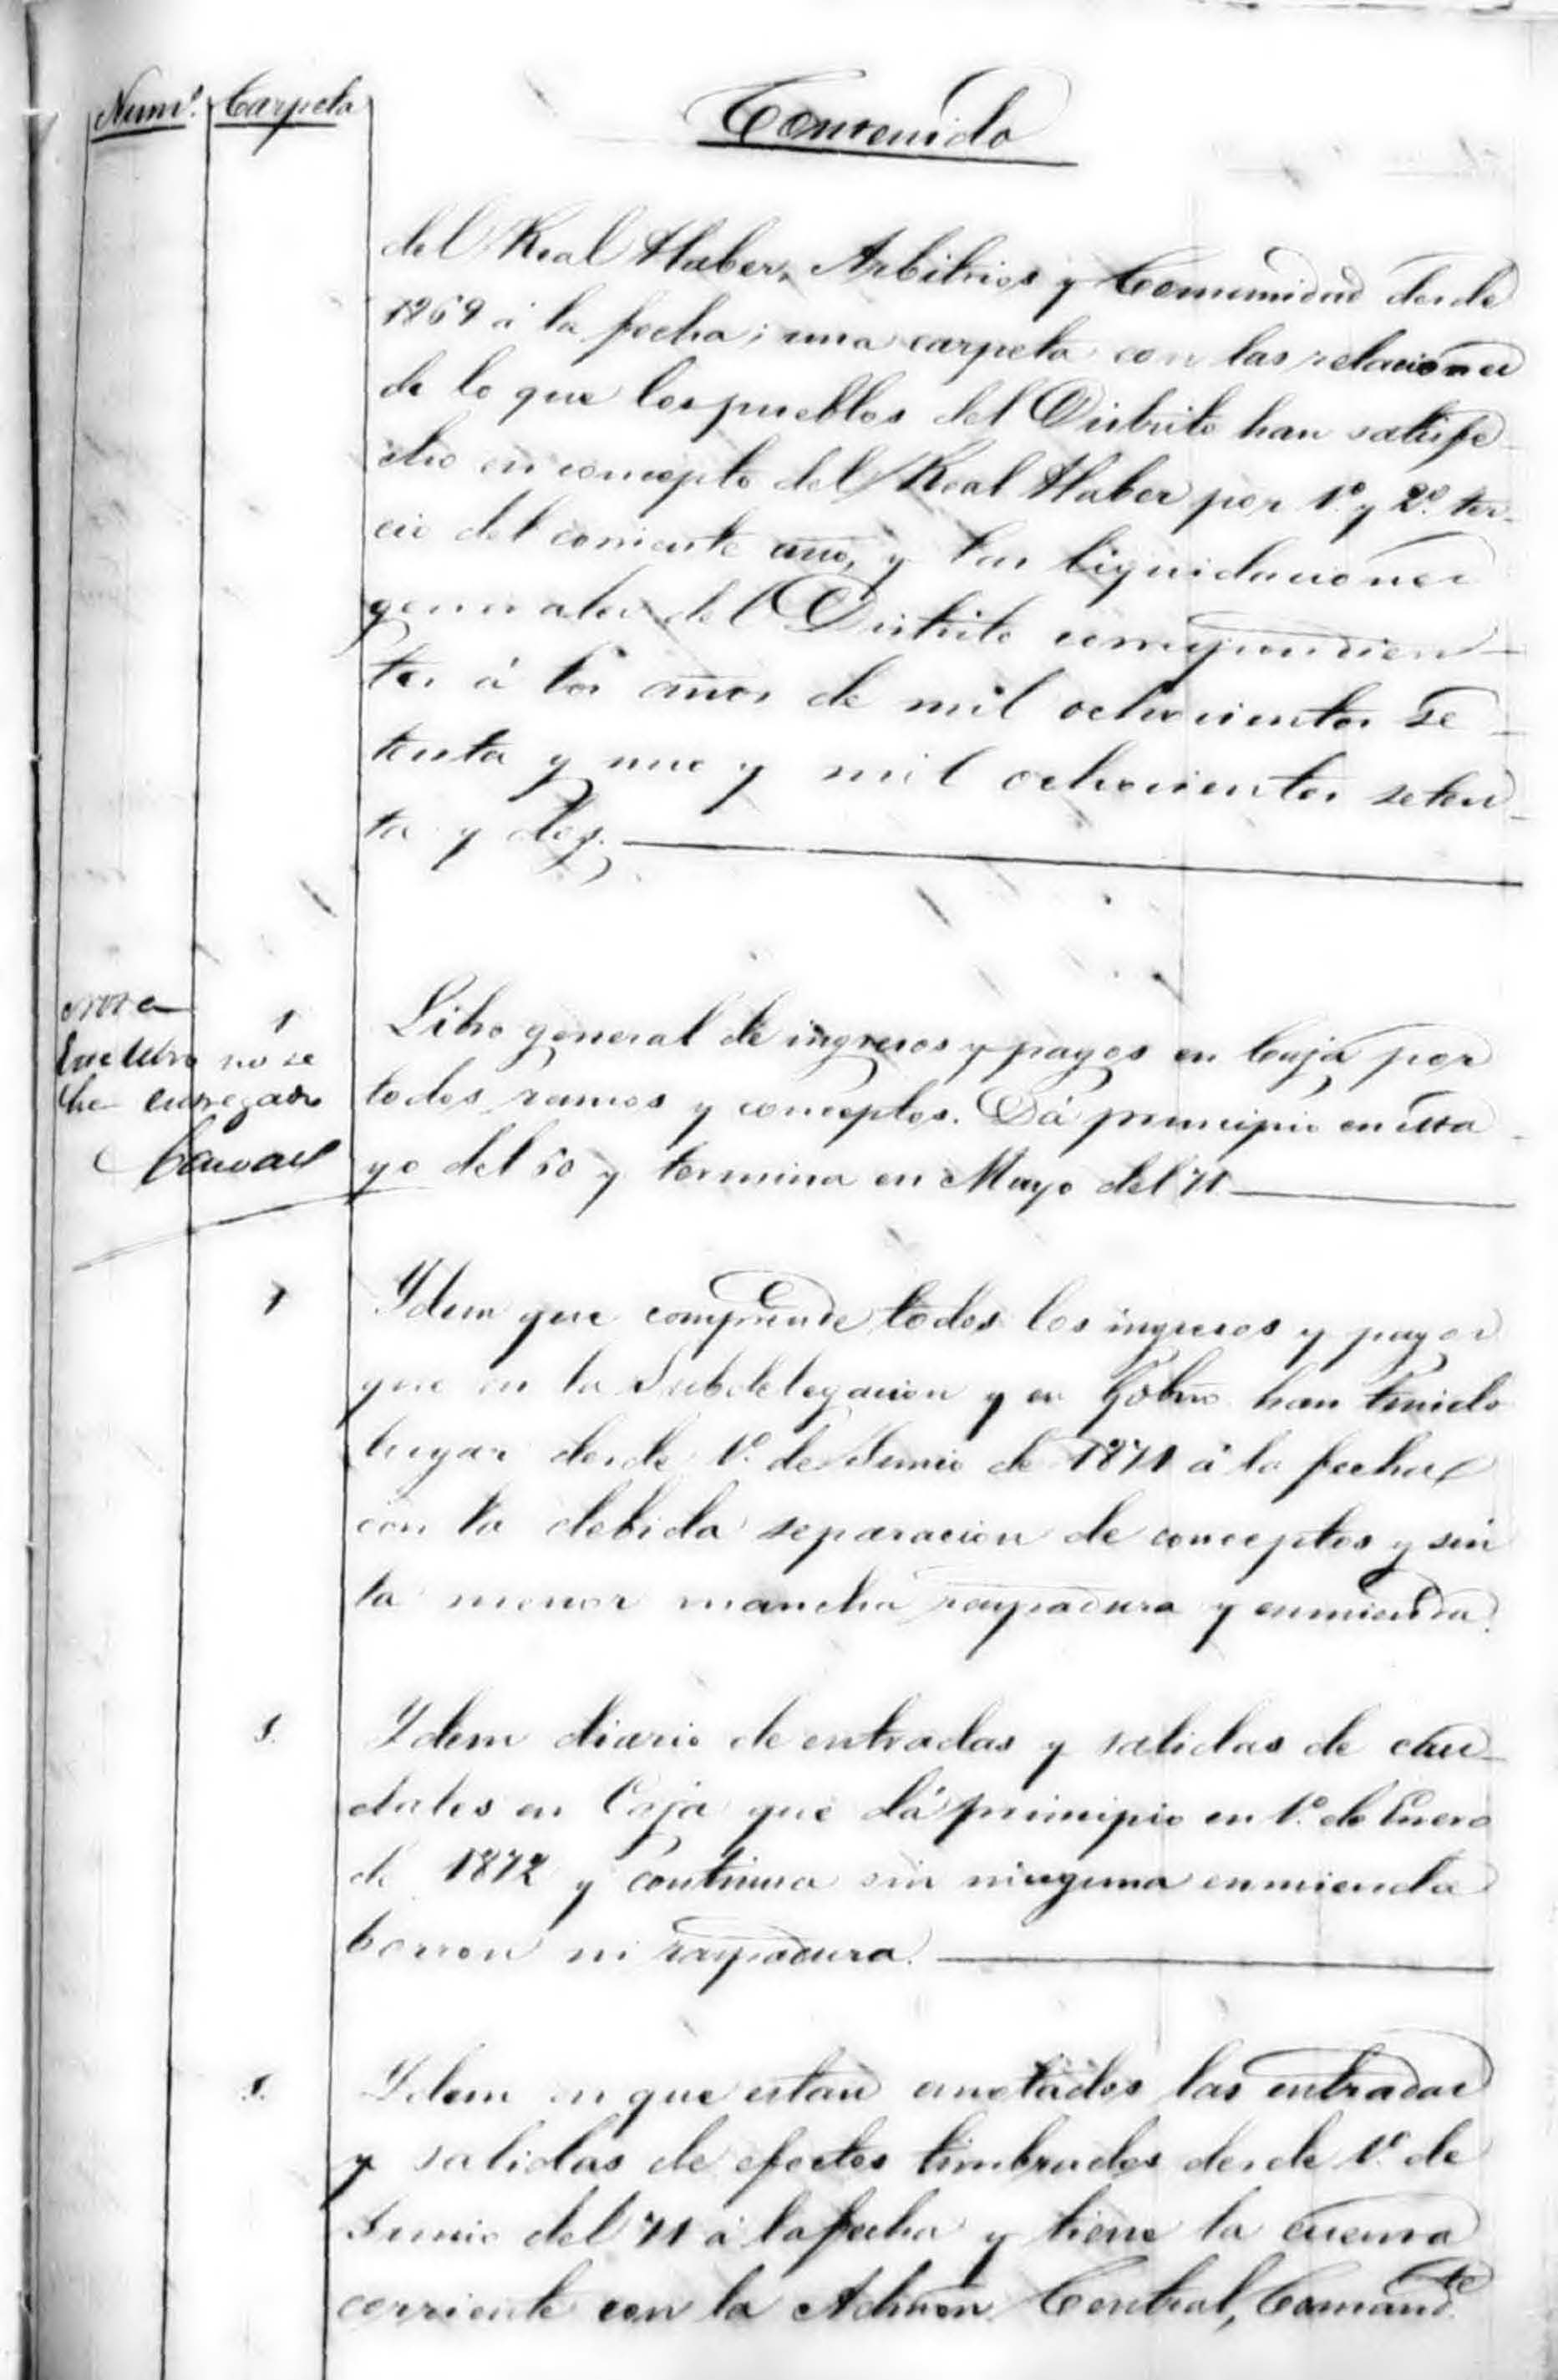 Num.º Carpeta Contenido
del Real Haber, Arbitrios y Comunidad desde
1869 á la fecha; una carpeta con las relaciones
de lo que los pueblos del Distrito han satisfe-
cho en concepto del Real Haber por 1.º y 2.º ter-
cio del corriente año, y las liquidaciones
generales del Distrito correspondien-
tes á los años de mil ochocientos se-
tenta y uno y mil ochocientos seten-
ta y dos.
Nota
Este libro no se
ha entregado
1 Libro general de ingresos y pagos en Caja por
todos ramos y conceptos. Dá principio en Ma-
yo del 60 y termina en Mayo del 71
1 Ydem que comprende todos los ingresos y pagos
que en la Subdelegacion y en Gobno han tenido
lugar desde 1.º de Junio de 1871 á la fecha
con la debida separacion de conceptos y sin
la menor mancha raspadura y enmienda.
1. Ydem diario de entradas y salidas de cau-
dales en Caja que dá principio en 1.º de Enero
de 1872 y continua sin ninguna enmienda
borron ni raspadura.
1. Ydem en que estan anotados las entradas
y salidas de efectos timbrados desde 1.º de
Junio del 71 á la fecha y tiene la cuenta
corriente con la Admon Central, Comand.te